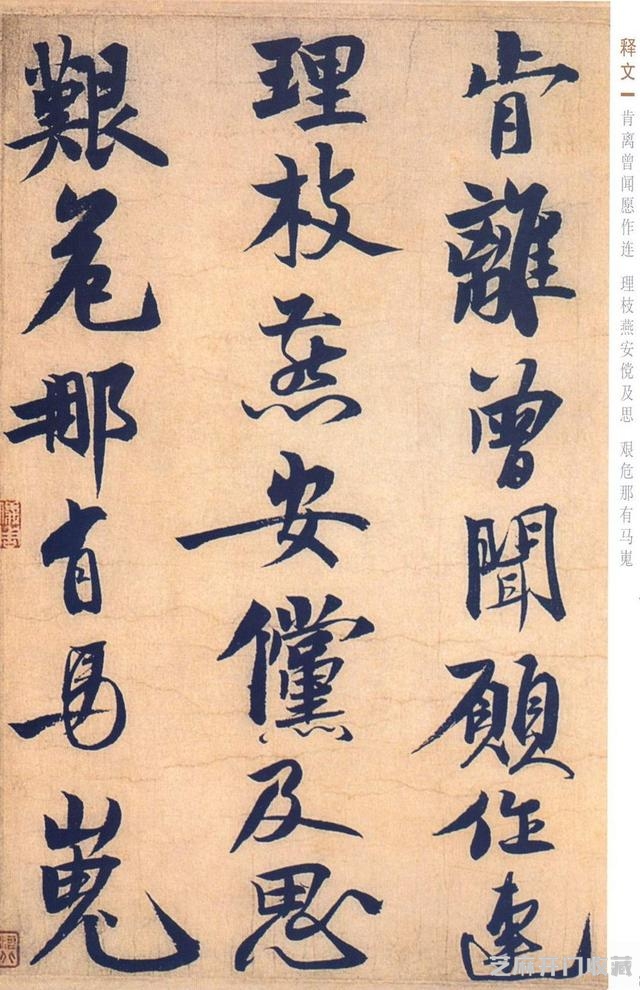 肯離曾聞願作連
理枝燕安儻及思
艱危那有馬嵬
释文
肯离曾闻愿作连 理枝燕安傥及思 艰危那有马嵬
芝麻开门收藏